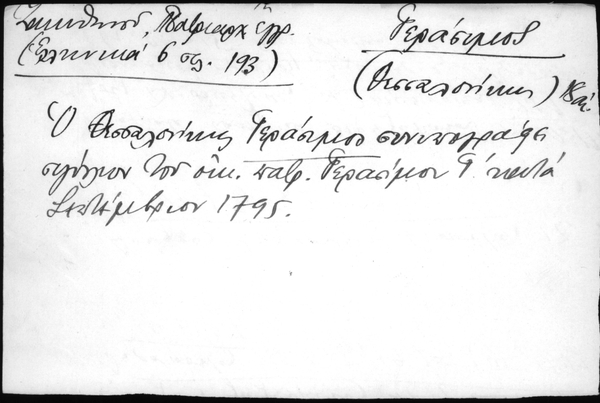 Ζακυθηνού, Πατριαρχ. έγγρ.
(Ελληνικά 6 σελ. 193)
Γεράσιμος
(Θεσσαλονίκης) 18 αι.
Ὁ Θεσσαλονίκης Γεράσιμος συνυπογράφει
σιγίλλιον τοῦ οἰκ. πατρ. Γερασίμου Γ΄ κατά
Σεπτέμβριον 1795.